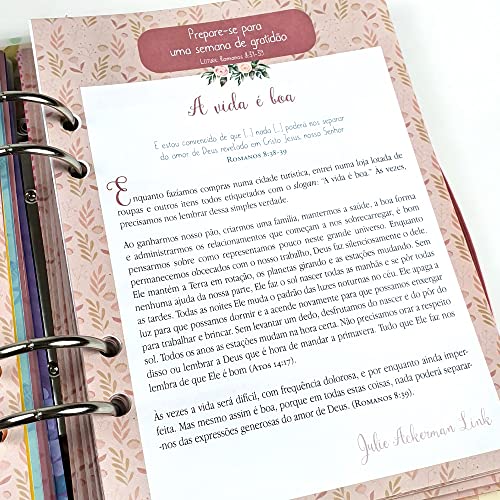 Prepare-se para
uma semana de gratidão
Leitura: Romanos 8:31-39
A vida é boa
E estou convencido de que [...] nada [...] poderá nos separar
do amor de Deus revelado em Cristo Jesus, nosso Senhor
Romanos 8:38-39
Enquanto fazíamos compras numa cidade turística, entrei numa loja lotada de
roupas e outros itens todos etiquetados com o slogan: “A vida é boa.” Às vezes,
precisamos nos lembrar dessa simples verdade.
Ao ganharmos nosso pão, criarmos uma família, mantermos a saúde, a boa forma
e administrarmos os relacionamentos que começam a nos sobrecarregar, é bom
pensarmos sobre como representamos pouco neste grande universo. Enquanto
permanecemos obcecados com o nosso trabalho, Deus faz silenciosamente o dele.
Ele mantém a Terra em rotação, os planetas girando e as estações mudando. Sem
nenhuma ajuda da nossa parte, Ele faz o sol nascer todas as manhãs e se pôr todas
as tardes. Todas as noites Ele muda o padrão das luzes noturnas no céu. Ele apaga a
luz para que possamos dormir e a acende novamente para que possamos enxergar
para trabalhar e brincar. Sem levantar um dedo, desfrutamos do nascer e do pôr do
sol. Todos os anos as estações mudam na hora certa. Não precisamos orar a respeito
disso ou lembrar a Deus que é hora de mandar a primavera. Tudo que Ele faz nos
lembra de que Ele é bom (Atos 14:17).
Às vezes a vida será difícil, com frequência dolorosa, e por enquanto ainda imper-
feita. Mas mesmo assim é boa, porque em todas estas coisas, nada poderá separar-
-nos das expressões generosas do amor de Deus. (Romanos 8:39).
Julie Ackerman Link